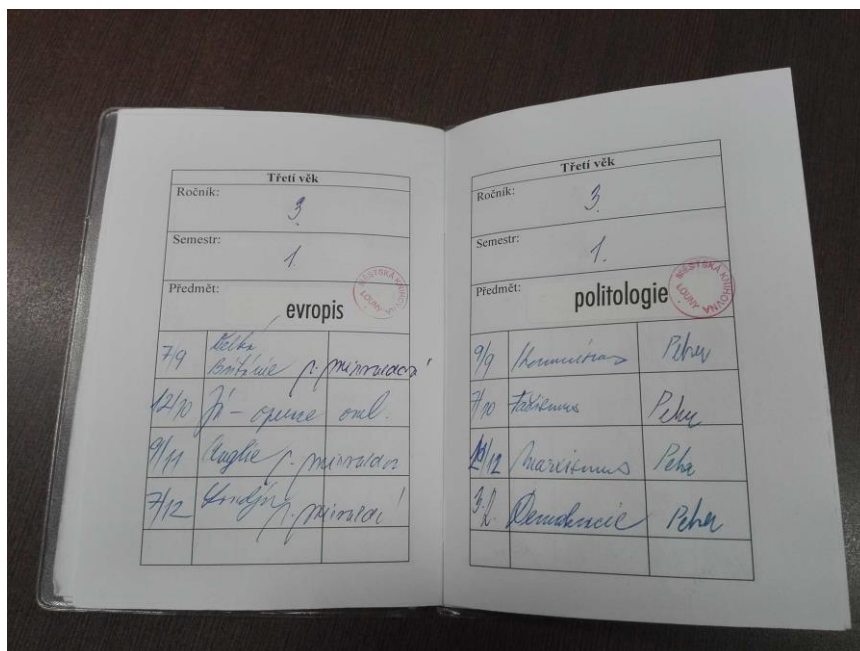 Třetí věk
Ročník:
3.
Semestr:
1.
Předmět:
evropis
MĚSTSKÁ KNIHOVNA
LOUNY
7/9 Velká
Británie p.
12/10 Já - opице
9/11 Anglie p.
7/12 Londýn p.
Třetí věk
Ročník:
3.
Semestr:
1.
Předmět:
politologie
MĚSTSKÁ KNIHOVNA
LOUNY
9/9 Komunismus
7/10 Fašismus
/12 Marxismus
3.2. Demokracie